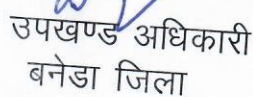 उपखण्ड अधिकारी
बनेडा जिला